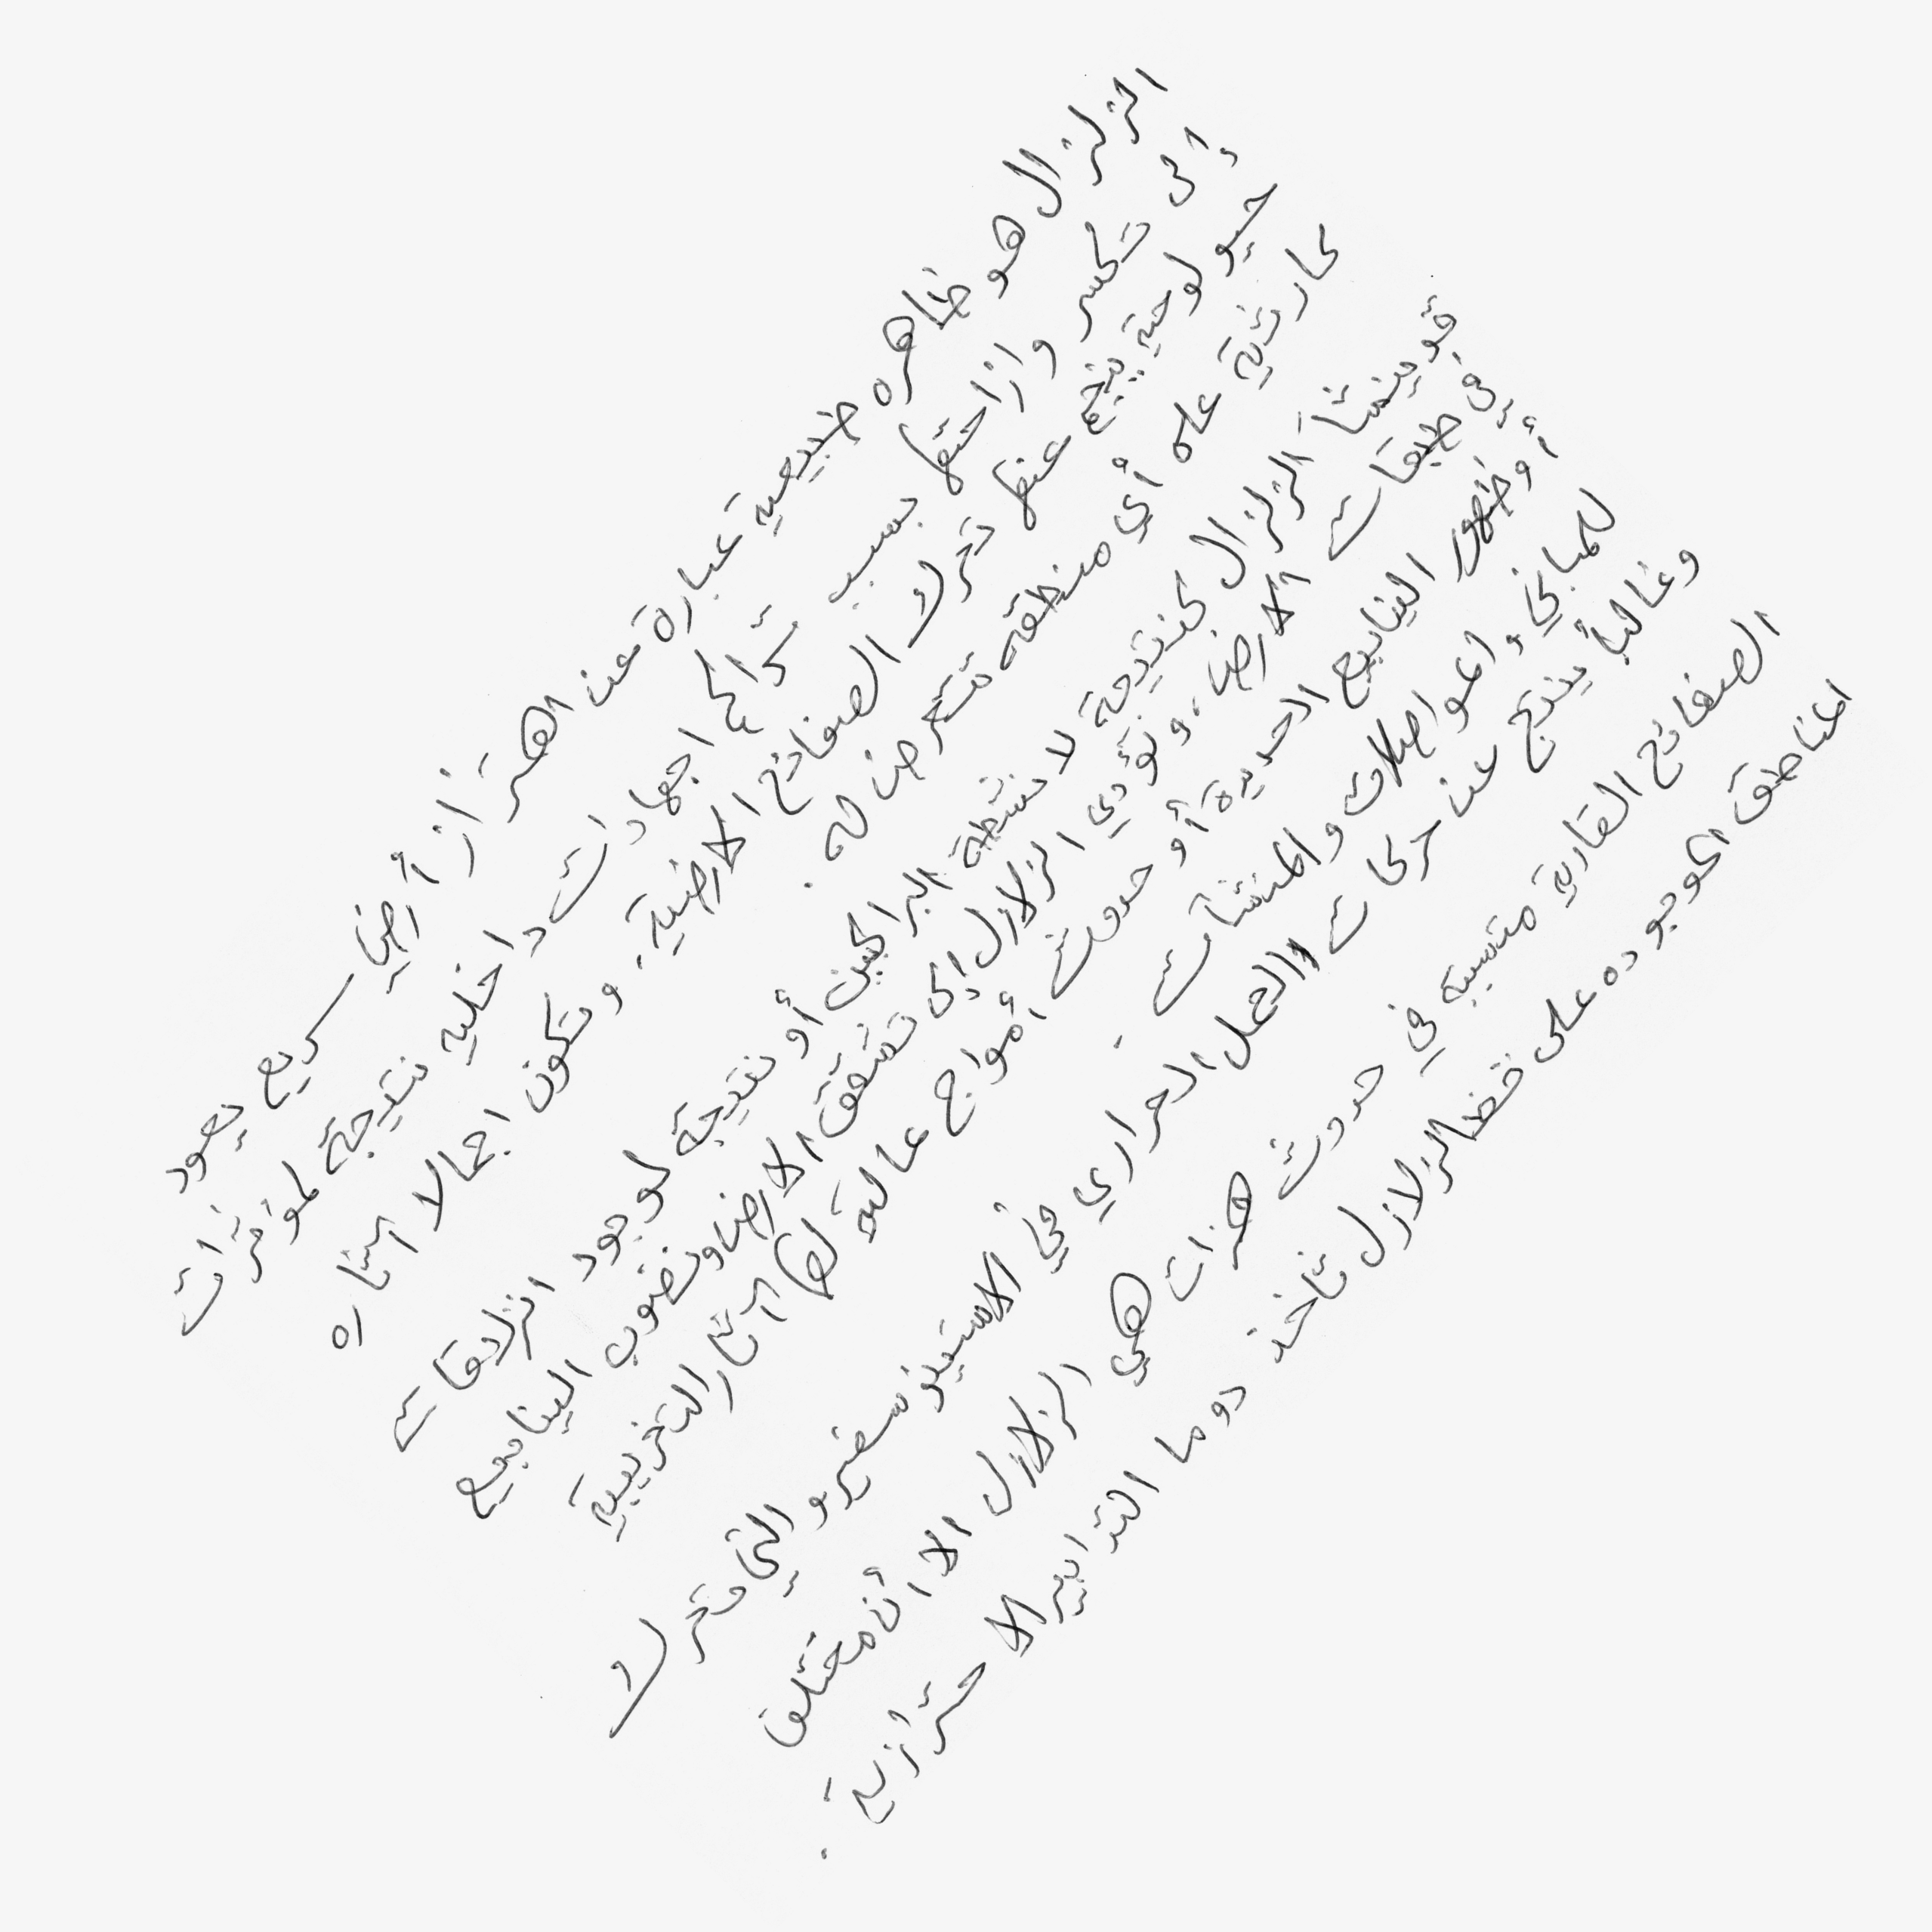 الزلزال هو ظاهره طبيعية عبارة عن اهتزاز أرضي سريع يعود
إلى تكسر وازاحتها بسبب تراكم اجهادات داخلية نتيجة لمؤثرات
جيولوجية ينتج عنها تحرك الصفائح الارضية. وتكون اجمالا آثاره
كارثية على أي منطقة تتعرض له.
قد ينشأ الزلزال كنتيجة لانشطة البراكين أو نتيجة لوجود انزلاقات
في طبقات الارض، وتؤدي الزلازل إلى تشقق الارض ونضوب الينابيع
أو ظهور الينابيع الجديدة أو حدوث أمواج عالية لها آثار التخريبية
للمباني والمواصلات والمنشآت.
وغالبا ينتج عن حركات الحمل الحراري في الاستينوسفير والتي تحرك
الصفائح القارية متسببة في حدوث هزات هي الزلازل الا ان مختلف
المناطق الموجوده على خط الزلازل تأخذ دوما التدابير الاحترازية.